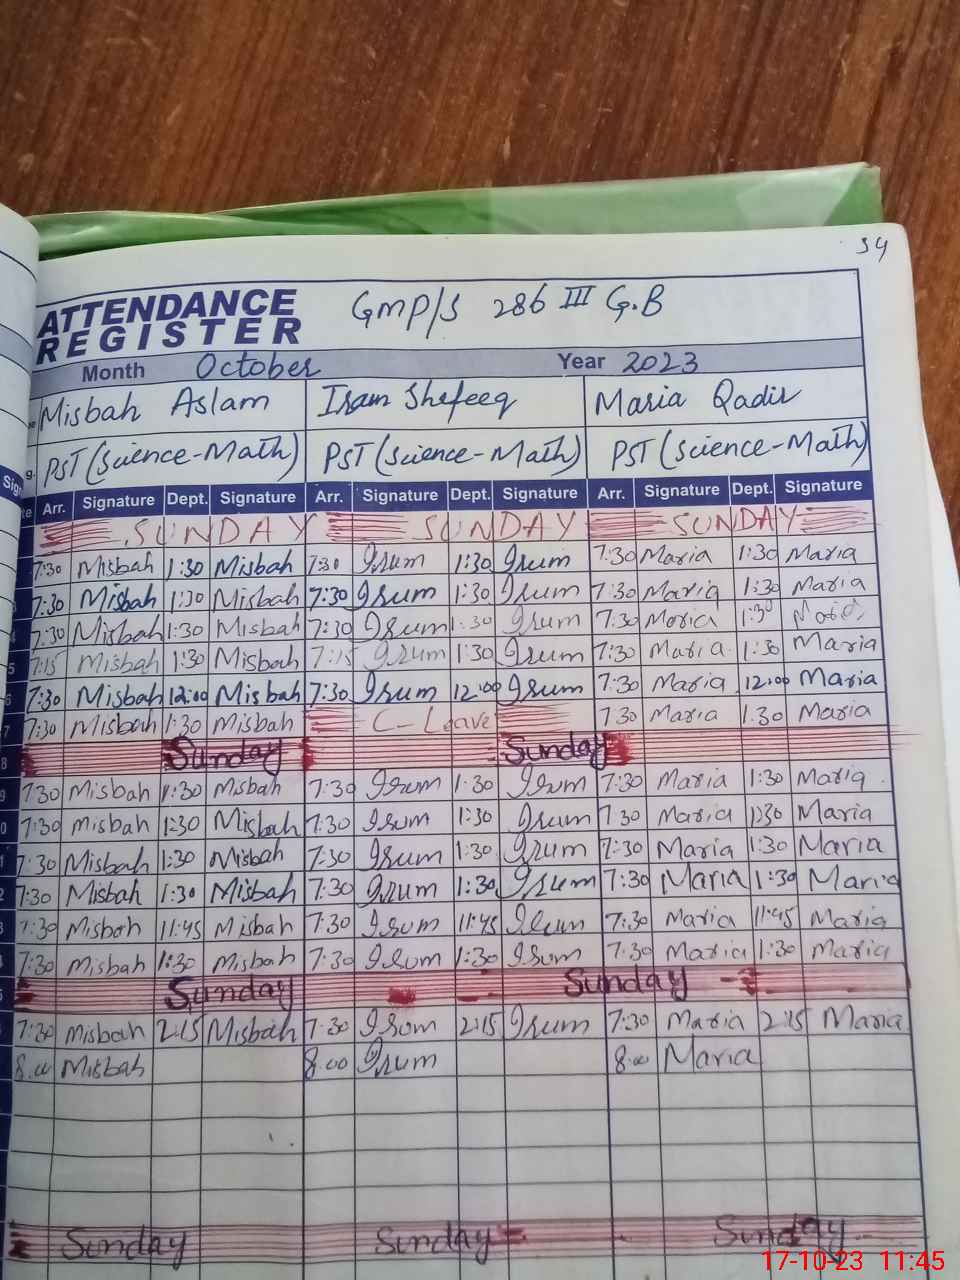 34
ATTENDANCE REGISTER GMP/S 286 III G.B
Month October Year 2023
Misbah Aslam Iram Shafeeq Maria Qadir
PST (Science-Math) PST (Science-Math) PST (Science-Math)
Arr. Signature Dept. Signature Arr. Signature Dept. Signature Arr. Signature Dept. Signature
SUNDAY SUNDAY SUNDAY
7:30 Misbah 1:30 Misbah 7:30 Irum 1:30 Irum 7:30 Maria 1:30 Maria
7:30 Misbah 1:30 Misbah 7:30 Irum 1:30 Irum 7:30 Maria 1:30 Maria
7:30 Misbah 1:30 Misbah 7:30 Irum 1:30 Irum 7:30 Maria 1:30
5 7:15 Misbah 1:30 Misbah 7:15 Irum 1:30 Irum 7:30 Maria 1:30 Maria
6 7:30 Misbah 12:00 Misbah 7:30 Irum 12:00 Irum 7:30 Maria 12:00 Maria
7 7:30 Misbah 1:30 Misbah C-Leave 7:30 Maria 1:30 Maria
8 Sunday Sunday
9 7:30 Misbah 1:30 Misbah 7:30 Irum 1:30 Irum 7:30 Maria 1:30 Maria
0 7:30 Misbah 1:30 Misbah 7:30 Irum 1:30 Irum 7:30 Maria 1:30 Maria
7:30 Misbah 1:30 Misbah 7:30 Irum 1:30 Irum 7:30 Maria 1:30 Maria
2 7:30 Misbah 1:30 Misbah 7:30 Irum 1:30 Irum 7:30 Maria 1:30 Maria
7:30 Misbah 11:45 Misbah 7:30 Irum 11:45 Irum 7:30 Maria 11:45 Maria
7:30 Misbah 1:30 Misbah 7:30 Irum 1:30 Irum 7:30 Maria 1:30 Maria
Sunday Sunday
7:30 Misbah 2:15 Misbah 7:30 Irum 2:15 Irum 7:30 Maria 2:15 Maria
8:00 Misbah 8:00 Irum 8:00 Maria
Sunday Sunday Sunday
17-10-23 11:45